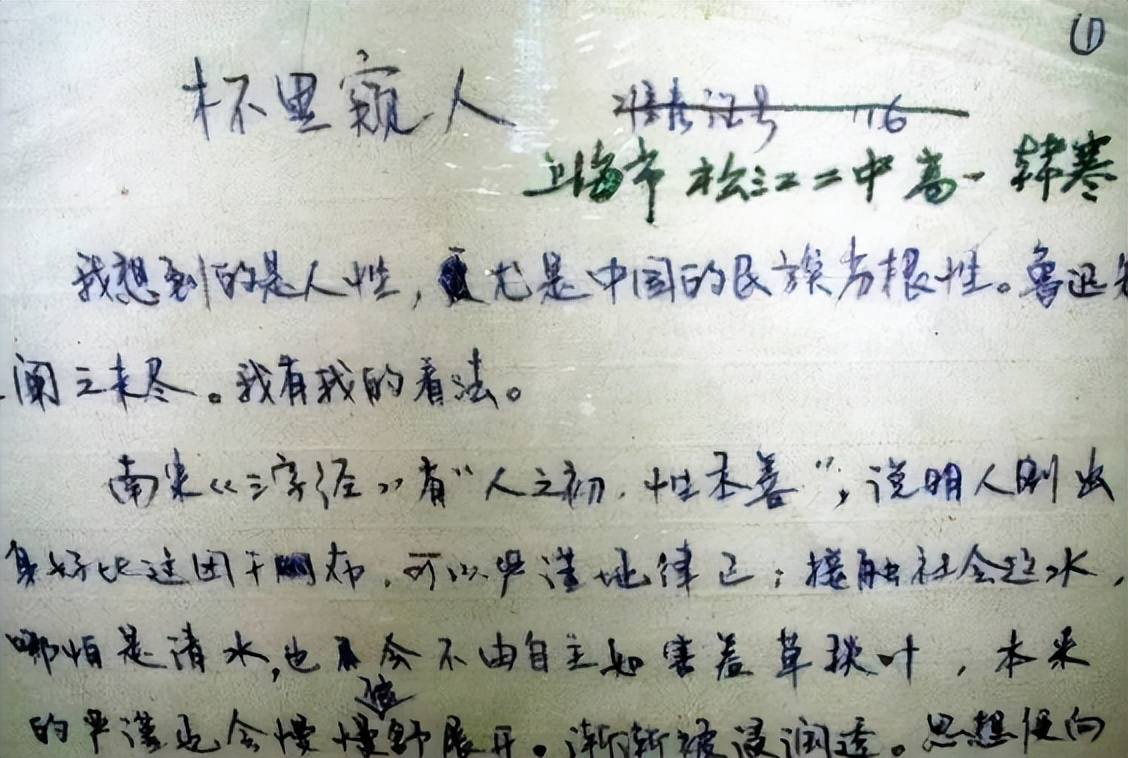 ①
杯里窥人
准考证号 116
上海市松江二中高一 韩寒
我想到的是人性,尤是中国的民族劣根性。鲁迅先
阐之未尽。我有我的看法。
南宋《三字经》有“人之初,性本善”,说明人刚出
身好比这团干布,可以严谨地律己;接触社会这水,
哪怕是清水,也会不由自主如害羞草掞叶,本来
的严谨也会慢慢舒展开。渐渐被浸润透。思想便向